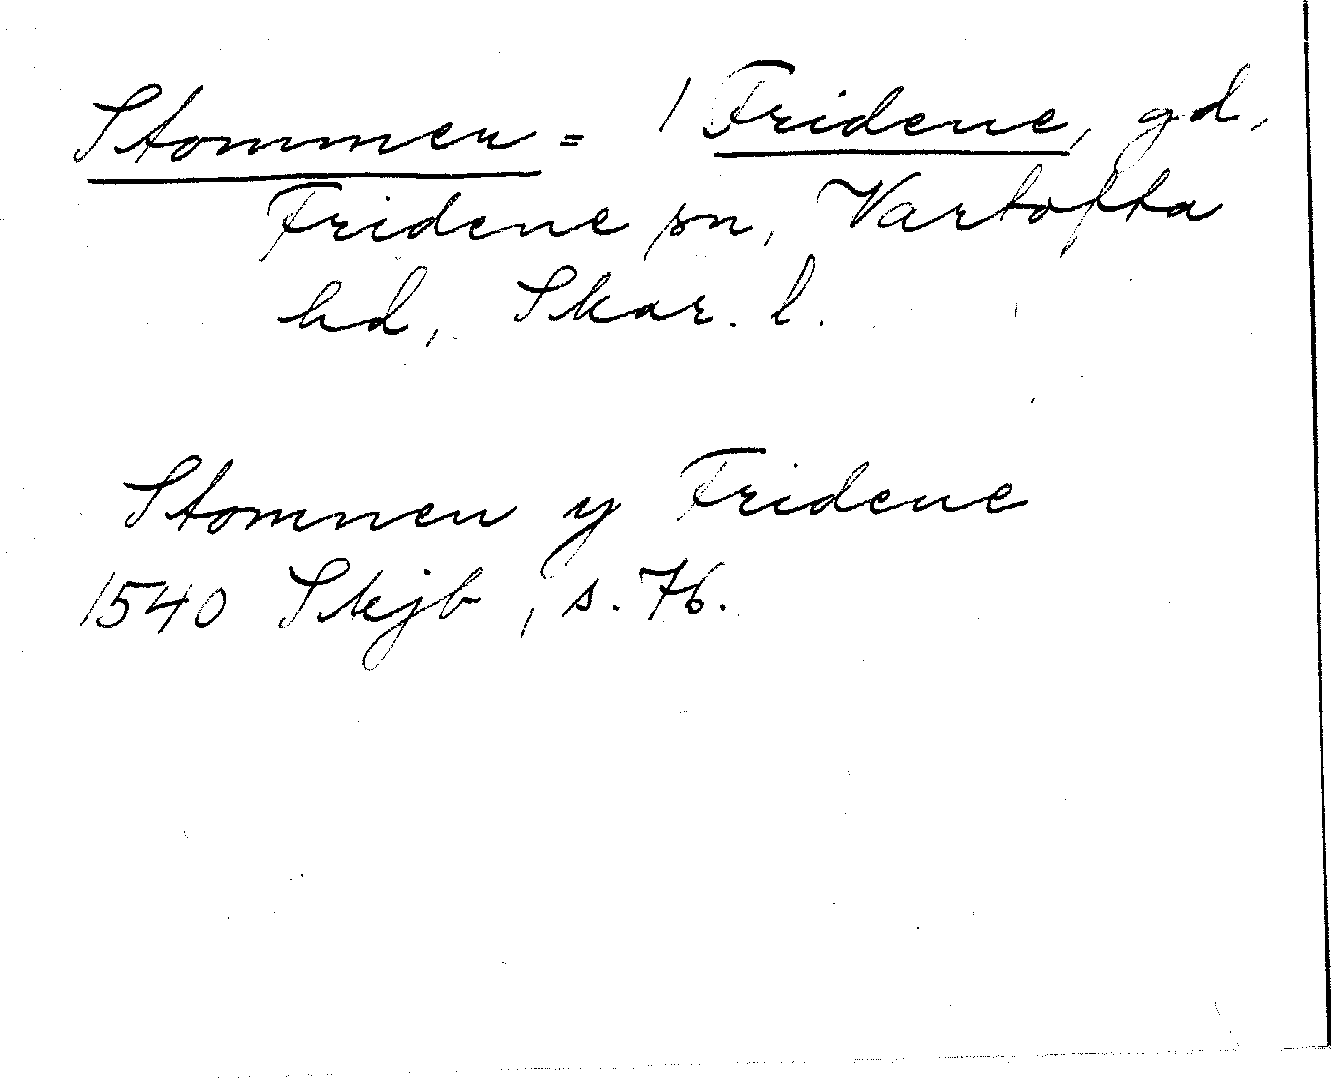 Stommen = 1 Fridene, gd,
Fridene sn, Vartofta
hd, Skar. l.
Stomnen y Fridene
1540 Skjb, s. 76.